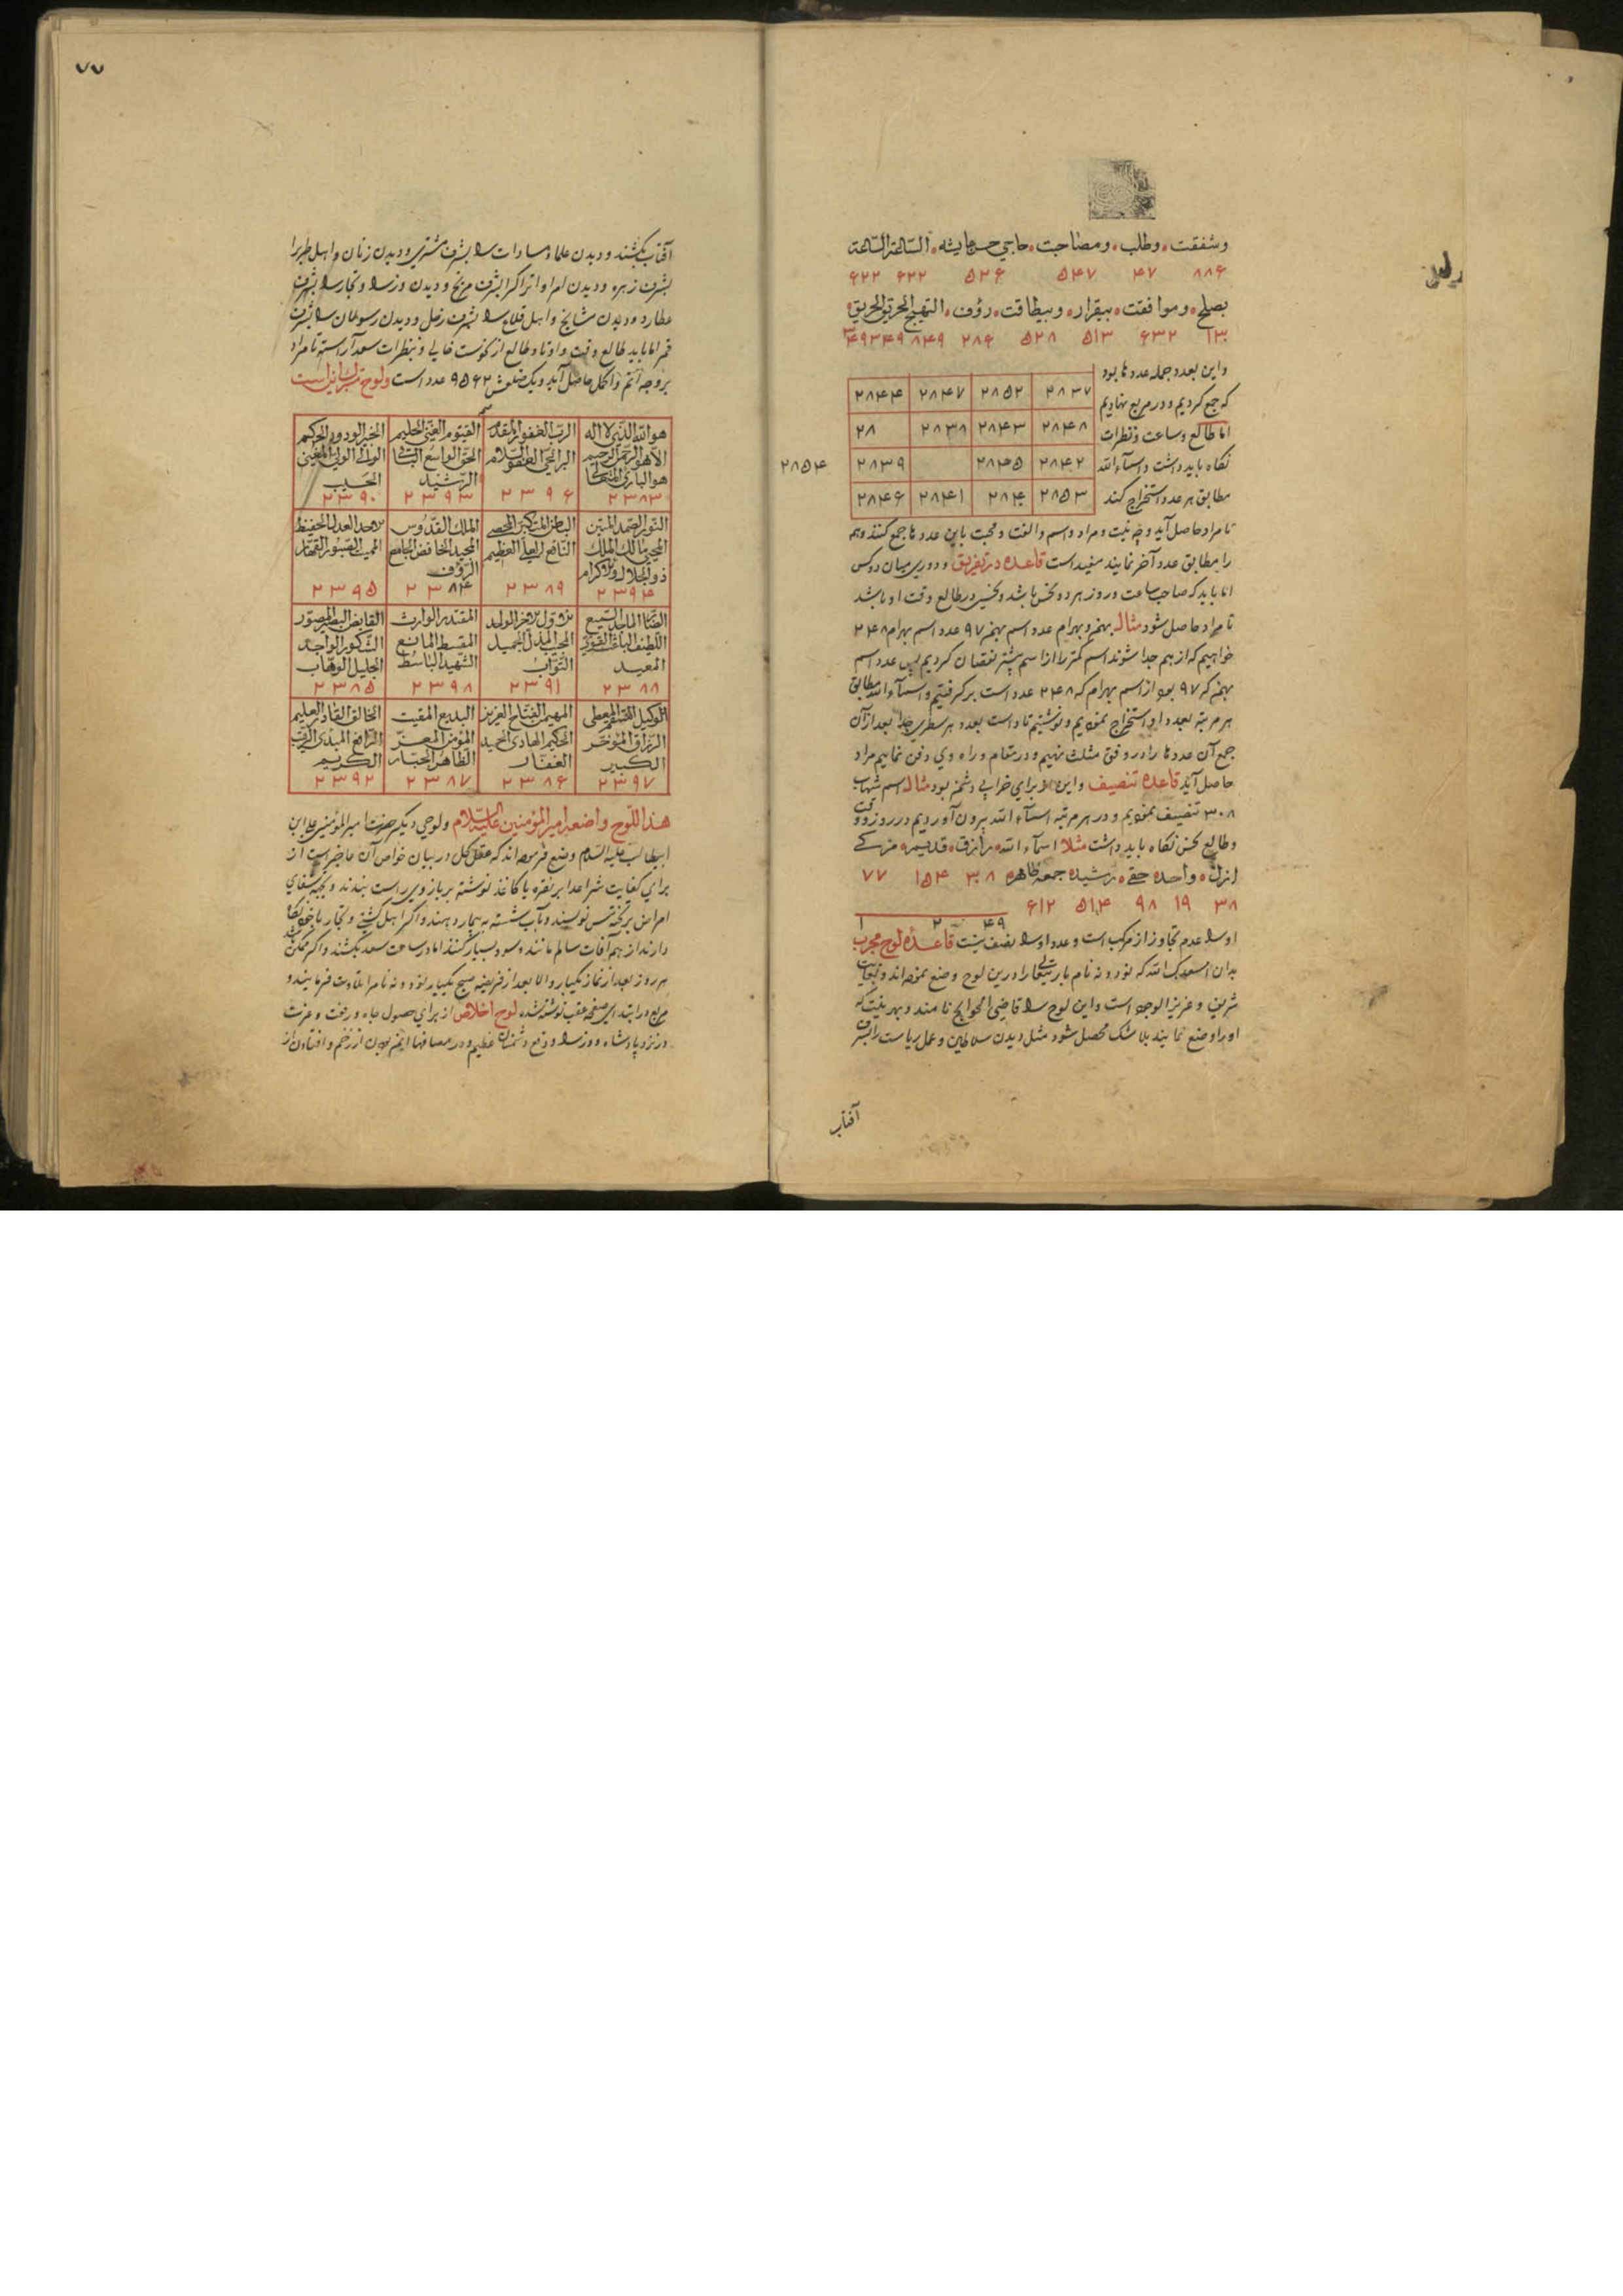 وشفقت وطلب ومصاحبت حاجی الساعة الساعة
۸۸۶ ۴۷ ۵۴۷ ۵۲۶ ۶۲۲ ۶۲۲
بصلح وموافقت بیقرار وبیطاقت رؤف التهیج الحرق الحریق
۱۳۰ ۶۳۲ ۵۱۳ ۵۲۸ ۲۸۶ ۸۴۹ ۳۴۹ ۳۴۹
واین بعدد جمله عددها بود
که جمع کردیم ودر مربع نهادیم
اما طالع وساعت ونظرات
نگاه باید داشت واسمآء الله
مطابق هر عدد استخراج کند
۲۸۳۷ ۲۸۵۲ ۲۸۴۷ ۲۸۴۴
۲۸۴۸ ۲۸۴۳ ۲۸۳۸ ۲۸
۲۸۴۲ ۲۸۴۵ ۲۸۳۹
۲۸۵۴
۲۸۵۳ ۲۸۴۰ ۲۸۴۱ ۲۸۴۶
تا مراد حاصل آید ونیت ومراد واسم والفت ومحبت باین عددها جمع کنند وهم
را مطابق عدد آخر نمایند مفیداست قاعده در تفریق ودوری میان دوکس
اما باید که صاحب ساعت وروز هر دو نحس باشد ونحس در طالع وقت او باشد
تا مراد حاصل شود مثال بهمن وبهرام عدد اسم بهمن ۹۷ عدد اسم بهرام ۲۴۸
خواهیم که از هم جدا شوند اسم کمتر را از اسم بیشتر نقصان کردیم پس عدد اسم
بهمن که ۹۷ بود از اسم بهرام که ۲۴۸ عدد است برگرفتیم واسمآء الله مطابق
هر مرتبه بعدد او استخراج نمودیم ونوشتیم تا داست بعدد هر سطری جدا بعد از آن
جمع آن عددها را در وفق مثلث نهیم ودر مقام وراه وی دفن نماییم مراد
حاصل آید قاعده تنصیف واین برای خرابی دشمن بود مثال اسم شهاب
۳۰۸ تنصیف نمودیم ودر هر مرتبه اسمآء الله بیرون آوردیم در روز ووقت
وطالع نحس نگاه باید داشت مثلا اسمآء الله رازق قدیم
ازل واحد حق رشید جمعه ۳۰۸ ۱۵۴ ۷۷
۳۸ ۱۹ ۹۸ ۵۱۴ ۶۱۲
۴۹ ۲ ۱
اورا عدم تجاوز از مرکب است وعدد اورا نصف نیست قاعده لوح مجرب
بدان اسعدک الله که نود ونه نام باریتعالی را درین لوح وضع نموده اند وبغایت
شریف وعزیز الوجود است واین لوح را قاضی الحوایج نامند وبهر نیت که
اورا وضع نمایند بلا شک محصل شود مثل دیدن سلاطین وعمل ریاست را بشرف
آفتاب
۷۷
آفتاب بکشند ودیدن علما وسادات را بشرف مشتری ودیدن زنان واهل طرب را
بشرف زهره ودیدن امرا واتراک را بشرف مریخ ودیدن وزرا وتجار را بشرف
عطارد ودیدن مشایخ واهل قلاع را بشرف زحل ودیدن رسولان را بشرف
قمر اما باید طالع وقت واوتاد طالع از نحوست خالی وبنظرات سعد آراسته تا مراد
بر وجه اتم واکمل حاصل آید ویک ضلعش ۹۵۶۲ عدد است ولوح اینست
هو الله الذی لا اله الا هو الرحمن الرحیم هو الباری المتعالی ۲۳۸۳
الرب الغفور المقدم البر الحی العفو السلام ۲۳۹۶
القیوم الغنی الحلیم الحق الواسع الباقی الرشید ۲۳۹۳
الخبیر الودود الحکم الوالی الولی المغنی الحسیب ۲۳۹۰
النور الصمد المتین المحیی مالک الملک ذو الجلال والاکرام ۲۳۹۴
الباطن المتکبر المحصی النافع العلی العظیم ۲۳۸۹
الملک القدوس المجید الخافض الجامع الرؤف ۲۳۸۴
الاحد العدل الحفیظ الممیت الصبور القهار ۲۳۹۵
الضار الماجد السمیع اللطیف الباعث القوی المعید ۲۳۸۸
الاول الاخر الواحد المجیب المذل الجمیل التواب ۲۳۹۱
المقتدر الوارث المقسط المانع الشهید الباسط ۲۳۹۸
القابض البصیر المصور الشکور الواجد الجلیل الوهاب ۲۳۸۵
الوکیل المنتقم المعطی الرزاق المؤخر الکبیر ۲۳۹۷
المهیمن الفتاح العزیز الحکیم الهادی الحمید الغفار ۲۳۸۶
البدیع المقیت المؤمن المعز الظاهر الجبار ۲۳۸۷
الخالق القادر العلیم الرافع المبدی الرقیب الکریم ۲۳۹۲
هذا اللوح واضعه امیر المؤمنین علیه السلام ولوحی دیگر حضرت امیر المؤمنین علی ابن
ابیطالب علیه السلام وضع فرموده اند که عقل کل در بیان خواص آن عاجز است از
برای کفایت شر اعدا بر نقره یا کاغذ نوشته بر بازوی راست بندند وبجهة شفای
امراض بر تخته مس نویسند وبآب شسته به بیمار دهند واگر اهل کشتی وتجار با خود نگاه
دارند از همه آفات سالم مانند وسود بسیار کنند اما در ساعت سعد بکشند واگر ممکن
هر روز بعد از نماز یکبار والا بعد از فریضه صبح یکبار نود ونه نام را تلاوت فرمایند و
مربع در ابتدای صفحه عقب نوشته شده لوح اخلاص از برای حصول جاه ورفعت وعزت
در نزد پادشاه ووزرا ودفع دشمنان عظیم ودر مصافها ایمن بودن از زخم وافتادن از